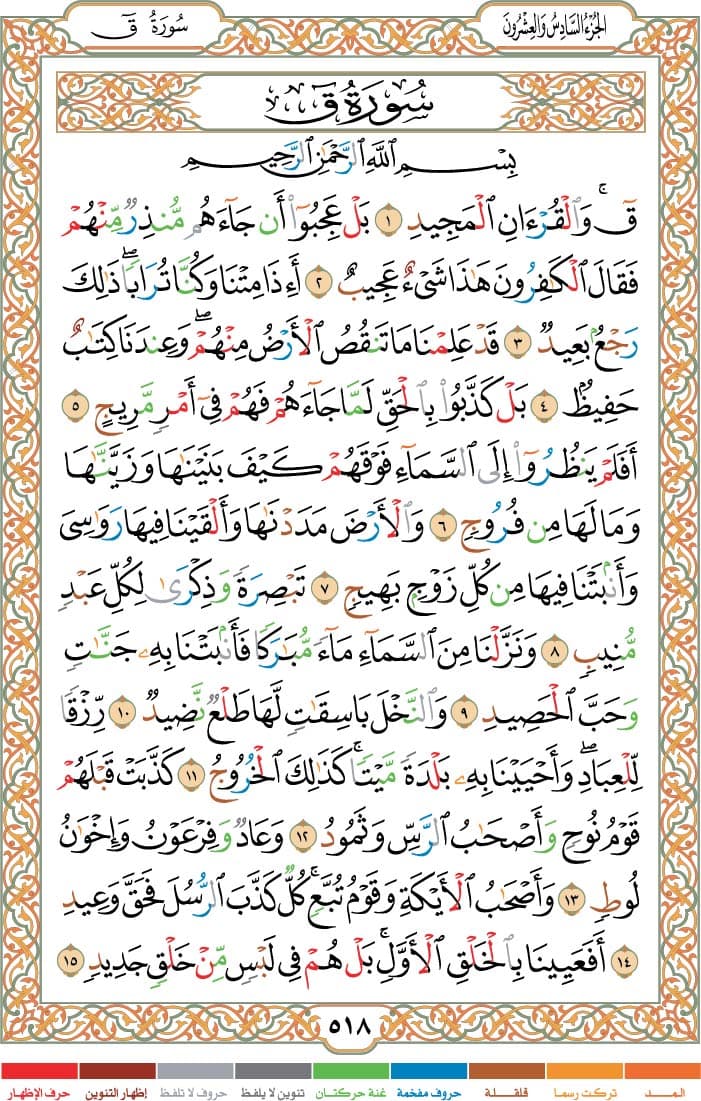 الجُزْءُ السَّادِسُ وَالعِشْرُونَ
سُورَةُ قٓ
سُورَةُ قٓ
بِسْمِ ٱللَّهِ ٱلرَّحْمَٰنِ ٱلرَّحِيمِ
قٓۚ وَٱلْقُرْءَانِ ٱلْمَجِيدِ ١ بَلْ عَجِبُوٓا۟ أَن جَآءَهُم مُّنذِرٌ مِّنْهُمْ
فَقَالَ ٱلْكَٰفِرُونَ هَٰذَا شَىْءٌ عَجِيبٌ ٢ أَءِذَا مِتْنَا وَكُنَّا تُرَابًاۖ ذَٰلِكَ
رَجْعٌۢ بَعِيدٌ ٣ قَدْ عَلِمْنَا مَا تَنقُصُ ٱلْأَرْضُ مِنْهُمْۖ وَعِندَنَا كِتَٰبٌ
حَفِيظٌۢ ٤ بَلْ كَذَّبُوا۟ بِٱلْحَقِّ لَمَّا جَآءَهُمْ فَهُمْ فِىٓ أَمْرٍ مَّرِيجٍ ٥
أَفَلَمْ يَنظُرُوٓا۟ إِلَى ٱلسَّمَآءِ فَوْقَهُمْ كَيْفَ بَنَيْنَٰهَا وَزَيَّنَّٰهَا
وَمَا لَهَا مِن فُرُوجٍ ٦ وَٱلْأَرْضَ مَدَدْنَٰهَا وَأَلْقَيْنَا فِيهَا رَوَٰسِىَ
وَأَنۢبَتْنَا فِيهَا مِن كُلِّ زَوْجٍۭ بَهِيجٍ ٧ تَبْصِرَةً وَذِكْرَىٰ لِكُلِّ عَبْدٍ
مُّنِيبٍ ٨ وَنَزَّلْنَا مِنَ ٱلسَّمَآءِ مَآءً مُّبَٰرَكًا فَأَنۢبَتْنَا بِهِۦ جَنَّٰتٍ
وَحَبَّ ٱلْحَصِيدِ ٩ وَٱلنَّخْلَ بَاسِقَٰتٍ لَّهَا طَلْعٌ نَّضِيدٌ ١٠ رِّزْقًا
لِّلْعِبَادِۖ وَأَحْيَيْنَا بِهِۦ بَلْدَةً مَّيْتًاۚ كَذَٰلِكَ ٱلْخُرُوجُ ١١ كَذَّبَتْ قَبْلَهُمْ
قَوْمُ نُوحٍ وَأَصْحَٰبُ ٱلرَّسِّ وَثَمُودُ ١٢ وَعَادٌ وَفِرْعَوْنُ وَإِخْوَٰنُ
لُوطٍ ١٣ وَأَصْحَٰبُ ٱلْأَيْكَةِ وَقَوْمُ تُبَّعٍۚ كُلٌّ كَذَّبَ ٱلرُّسُلَ فَحَقَّ وَعِيدِ
١٤ أَفَعَيِينَا بِٱلْخَلْقِ ٱلْأَوَّلِۚ بَلْ هُمْ فِى لَبْسٍ مِّنْ خَلْقٍ جَدِيدٍ ١٥
٥١٨
المــد تركت رسما قلقلة حروف مفخمة غنة حركتان تنوين لا يلفظ حروف لا تلفظ إظهار التنوين حرف الإظهار